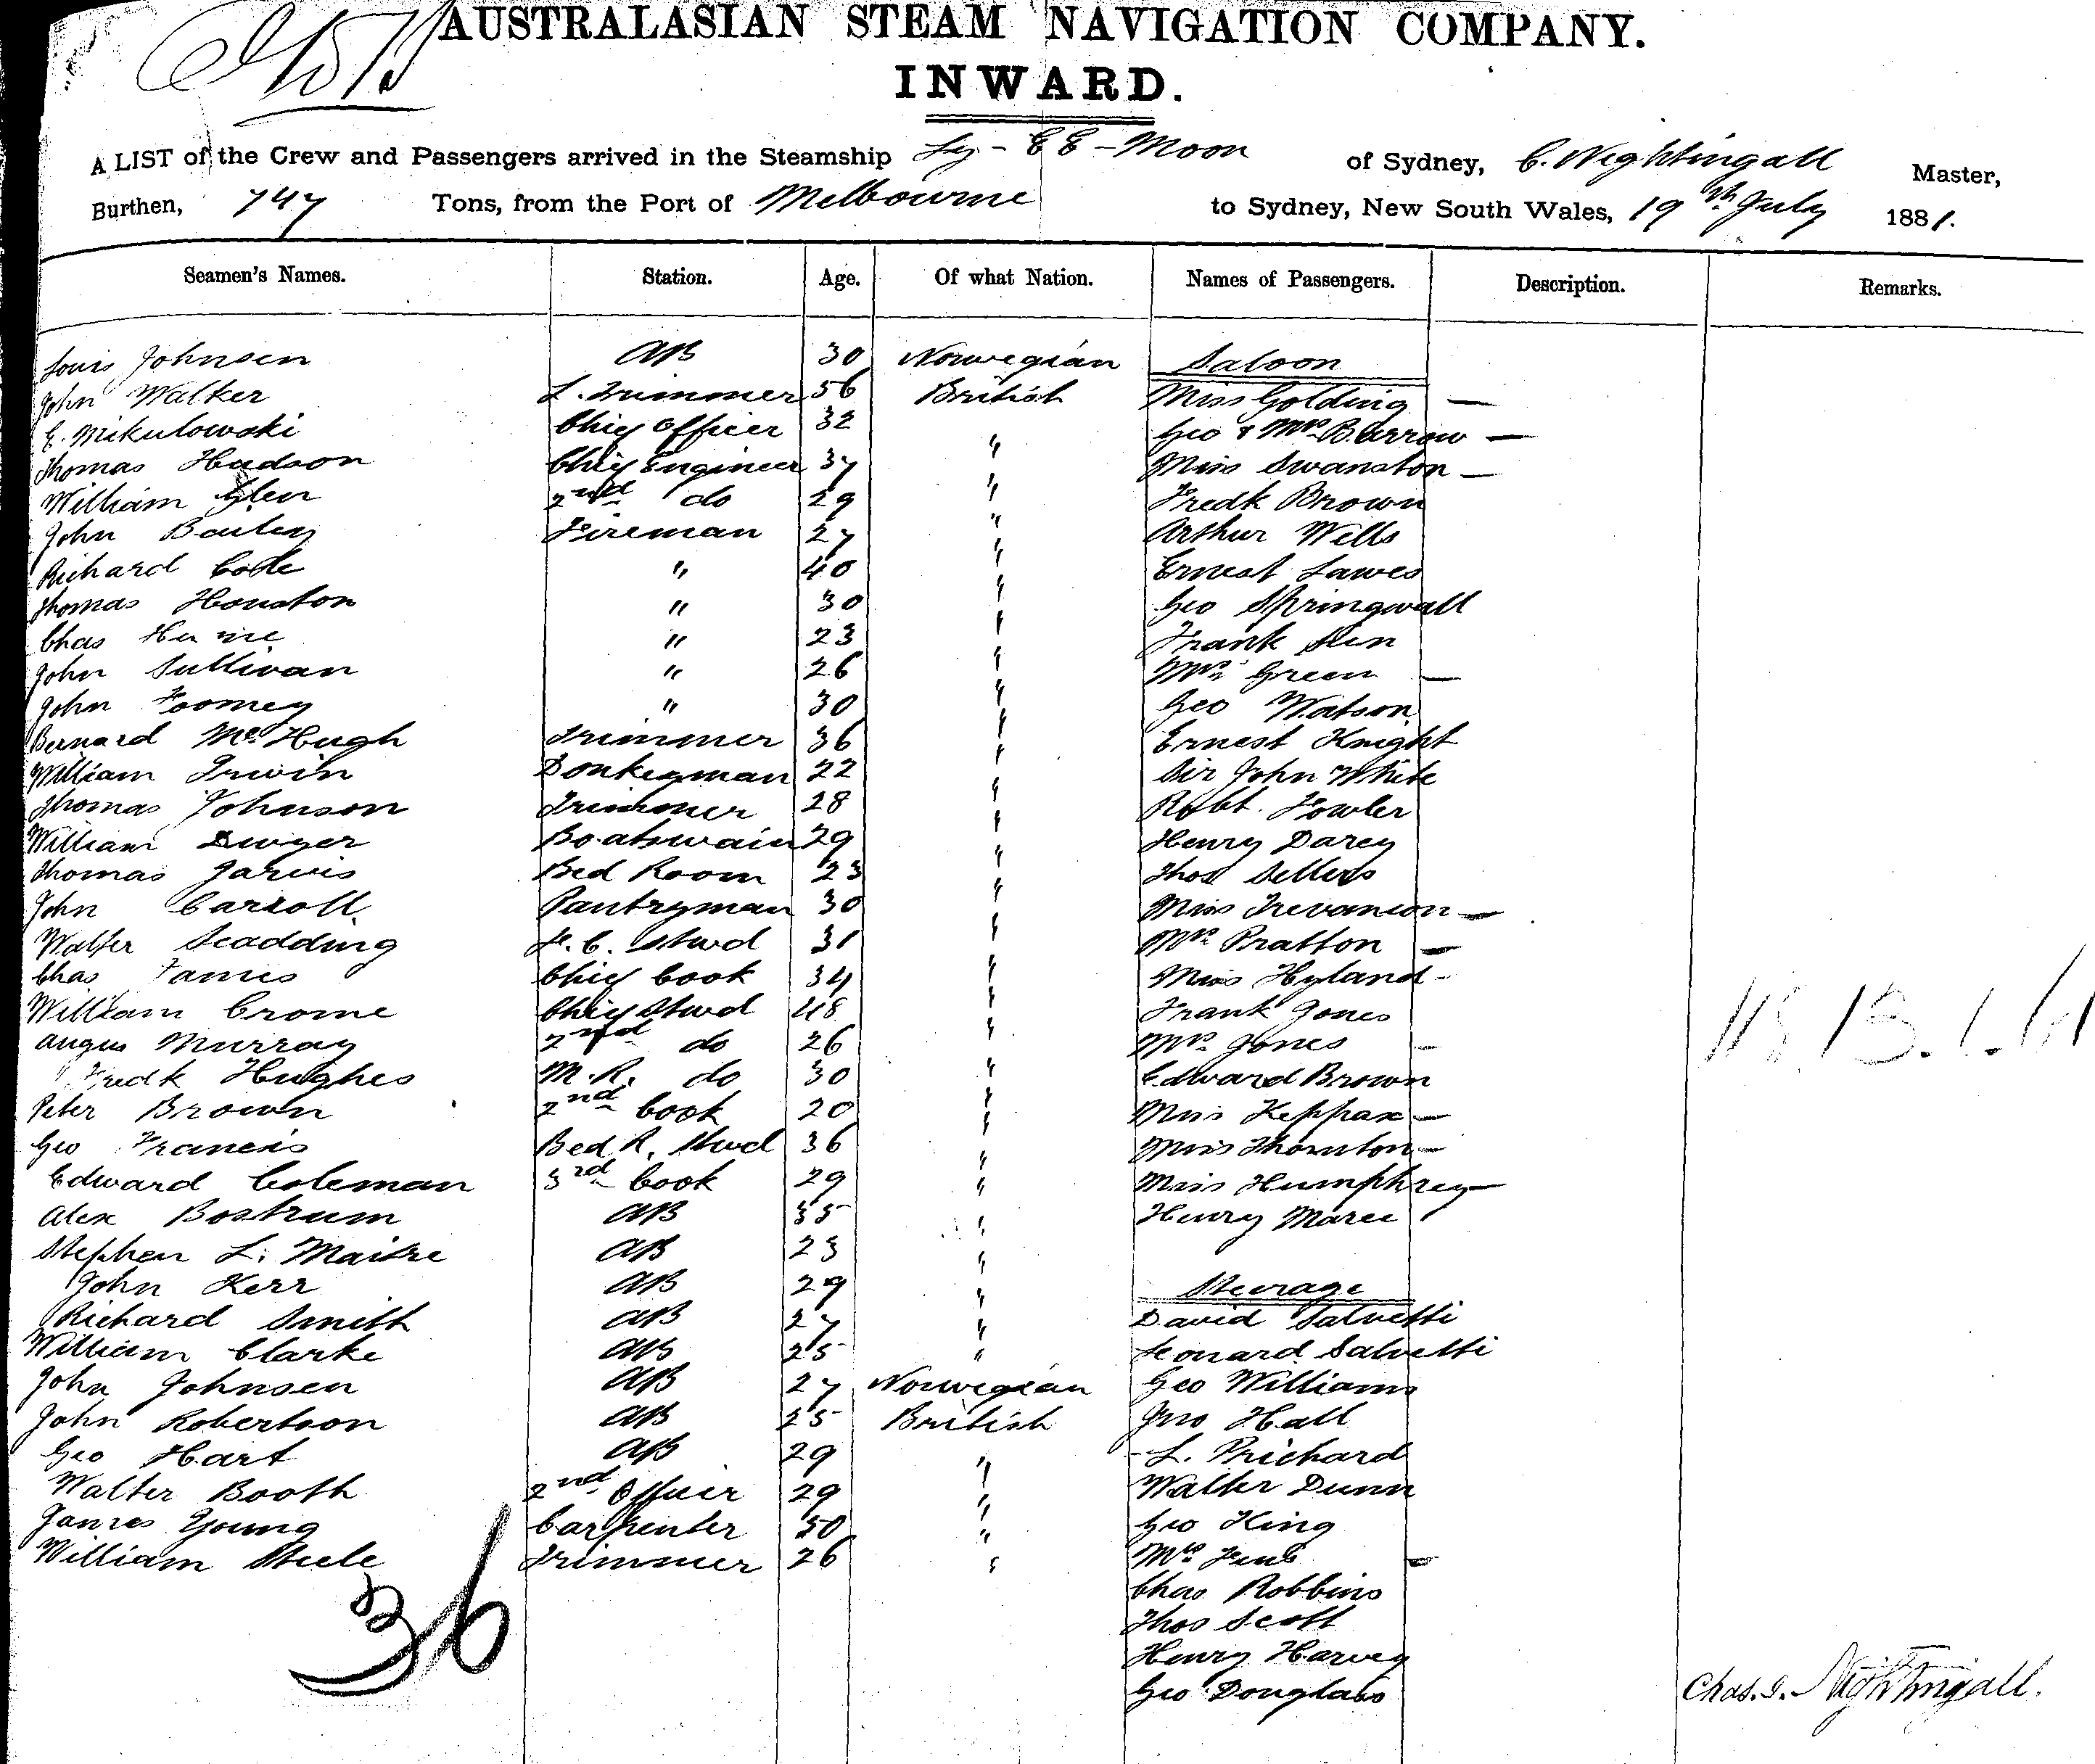 AUSTRALASIAN STEAM NAVIGATION COMPANY.
INWARD.
A LIST of the Crew and Passengers arrived in the Steamship Ly-EE-Moon of Sydney, C. Nightingall Master,
Burthen, 747 Tons, from the Port of Melbourne to Sydney, New South Wales, 19th July 1881.
Seamen's Names. Station. Age. Of what Nation. Names of Passengers. Description. Remarks.
Louis Johnsen AB 30 Norwegian Saloon
John Walker L. Trimmer 56 British Miss Golding —
E. Mikulowski Chief Officer 32 " Geo & Mrs Barrow —
Thomas Hudson Chief Engineer 37 " Miss Swanston —
William Glen 2nd do 29 " Fredk Brown
John Bouley Fireman 27 " Arthur Wells
Richard Cole " 40 " Ernest Lawes
Thomas Houston " 30 " Geo Springwall
Chas Hume " 23 " Frank
John Sullivan " 26 " Mrs Green —
John Toomey " 30 " Geo Watson
Bernard McHugh Trimmer 36 " Ernest Knight
William Irwin Donkeyman 22 " Sir John White
Thomas Johnson Trimmer 28 " Robt. Fowler
William Dwyer Boatswain 29 " Henry Darcy
Thomas Jarvis Bed Room 23 " Thos Sellers
John Carroll Pantryman 30 " Miss Trevanion —
Walter Scadding F. C. Stwd 31 " Mrs Pratton —
Chas James Chief Cook 34 " Miss Hyland -
William Crome Chief Stwd 48 " Frank Jones
Angus Murray 2nd do 26 " Mrs Jones —
Fredk Hughes M.R. do 30 " Edward Brown
Peter Brown 2nd Cook 20 " Miss Keppax —
Geo Francis Bed R. Stwd 36 " Miss Thornton —
Edward Coleman 3rd Cook 29 " Miss Humphrey —
Alex Bostrum AB 35 " Henry
Stephen L. Maitre AB 23 "
John Kerr AB 29 " Steerage
Richard Smith AB 27 " David Salvetti
William Clarke AB 25 " Leonard Salvetti
John Johnsen AB 27 Norwegian Geo Williams
John Robertson AB 25 British Jno Hall
Geo Hart AB 29 " L. Prichard
Walter Booth 2nd Officer 29 " Walter Dunn
James Young Carpenter 50 " Geo King
William Steele Trimmer 26 " Mrs —
Chas Robbins
Thos Scott
Henry Harvey
Geo Douglass
36
Chas. J. Nightingall.